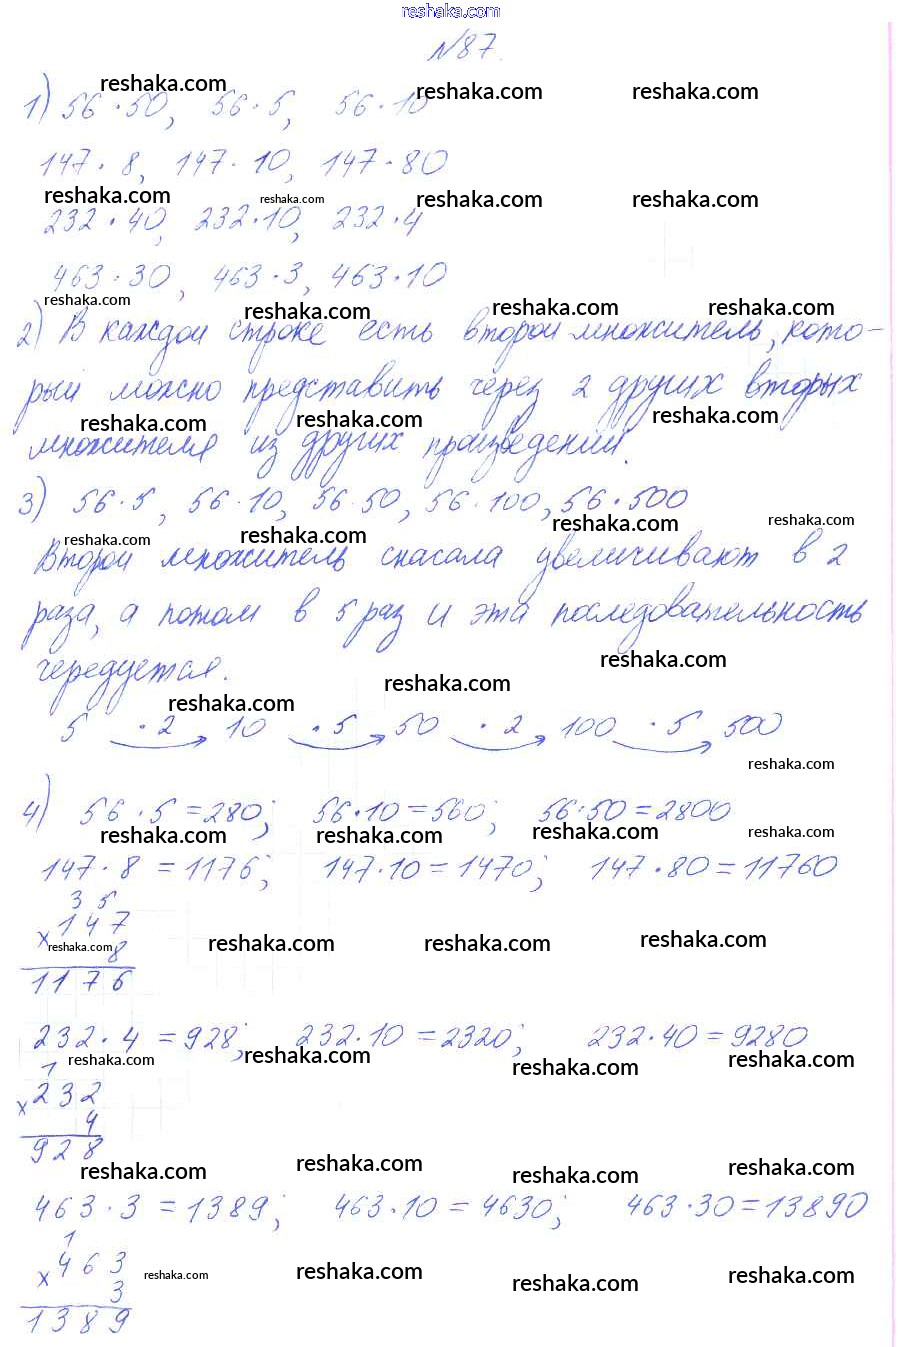 reshaka.com
№87.
1) 56 · 50, 56 · 5, 56 · 10
reshaka.com reshaka.com reshaka.com
147 · 8, 147 · 10, 147 · 80
reshaka.com reshaka.com reshaka.com reshaka.com
232 · 40, 232 · 10, 232 · 4
463 · 30, 463 · 3, 463 · 10
reshaka.com reshaka.com reshaka.com reshaka.com
2) В каждой строке есть второй множитель, кото-
рый можно представить через 2 других вторых
reshaka.com reshaka.com reshaka.com
множителя из других произведений.
3) 56 · 5, 56 · 10, 56 · 50, 56 · 100, 56 · 500
reshaka.com reshaka.com reshaka.com reshaka.com
Второй множитель снасала увеличивают в 2
раза, а потом в 5 раз и эта последовательность
reshaka.com
чередуется.
reshaka.com reshaka.com
5 · 2 10 · 5 50 · 2 100 · 5 500
reshaka.com
4) 56 · 5 = 280; 56 · 10 = 560; 56 · 50 = 2800
reshaka.com reshaka.com reshaka.com reshaka.com
147 · 8 = 1176; 147 · 10 = 1470; 147 · 80 = 11760
3 5
x 147
8
reshaka.com reshaka.com reshaka.com reshaka.com
1176
232 · 4 = 928; 232 · 10 = 2320; 232 · 40 = 9280
reshaka.com reshaka.com reshaka.com reshaka.com
1
x 232
4
928
reshaka.com reshaka.com reshaka.com reshaka.com
463 · 3 = 1389; 463 · 10 = 4630; 463 · 30 = 13890
1
x 463
3
reshaka.com reshaka.com reshaka.com reshaka.com
1389